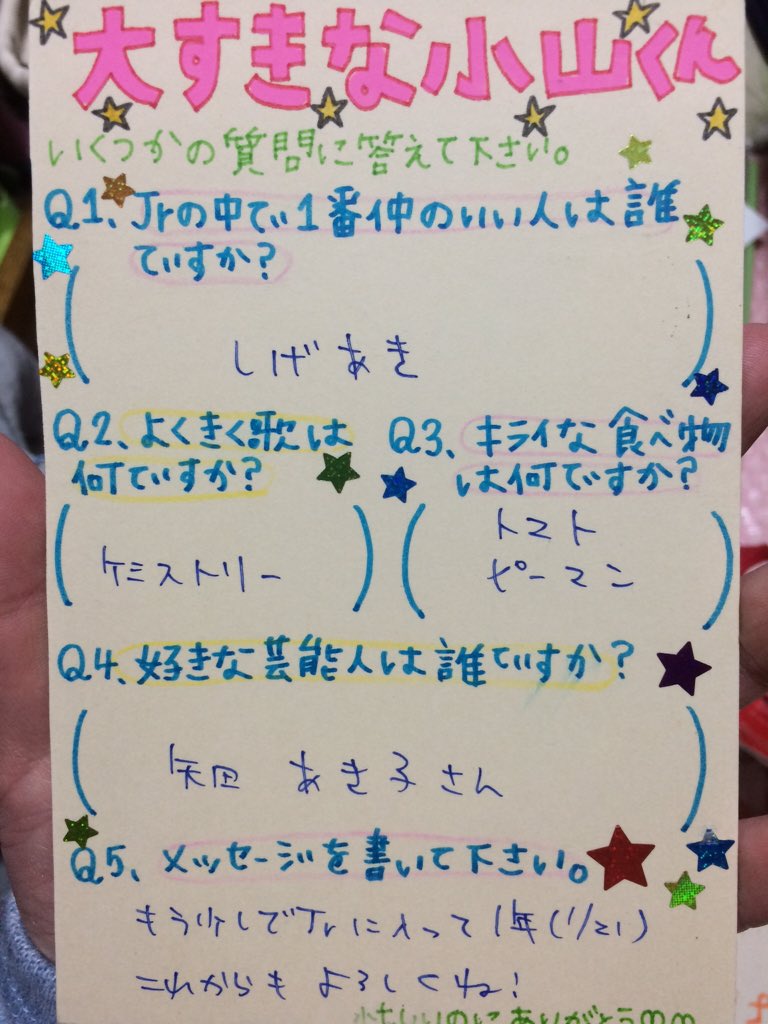 大すきな小山くん
いくつかの質問に答えて下さい。
Q1、Jrの中で1番仲のいい人は誰
ですか?
しげあき
Q2、よくきく歌は
何ですか?
ケミストリー
Q3、キライな食べ物
は何ですか?
トマト
ピーマン
Q4、好きな芸能人は誰ですか?
矢田 あき子さん
Q5、メッセージを書いて下さい。
もう少しでJrに入って1年(1/21)
これからもよろしくね!
忙しいのにありがとう